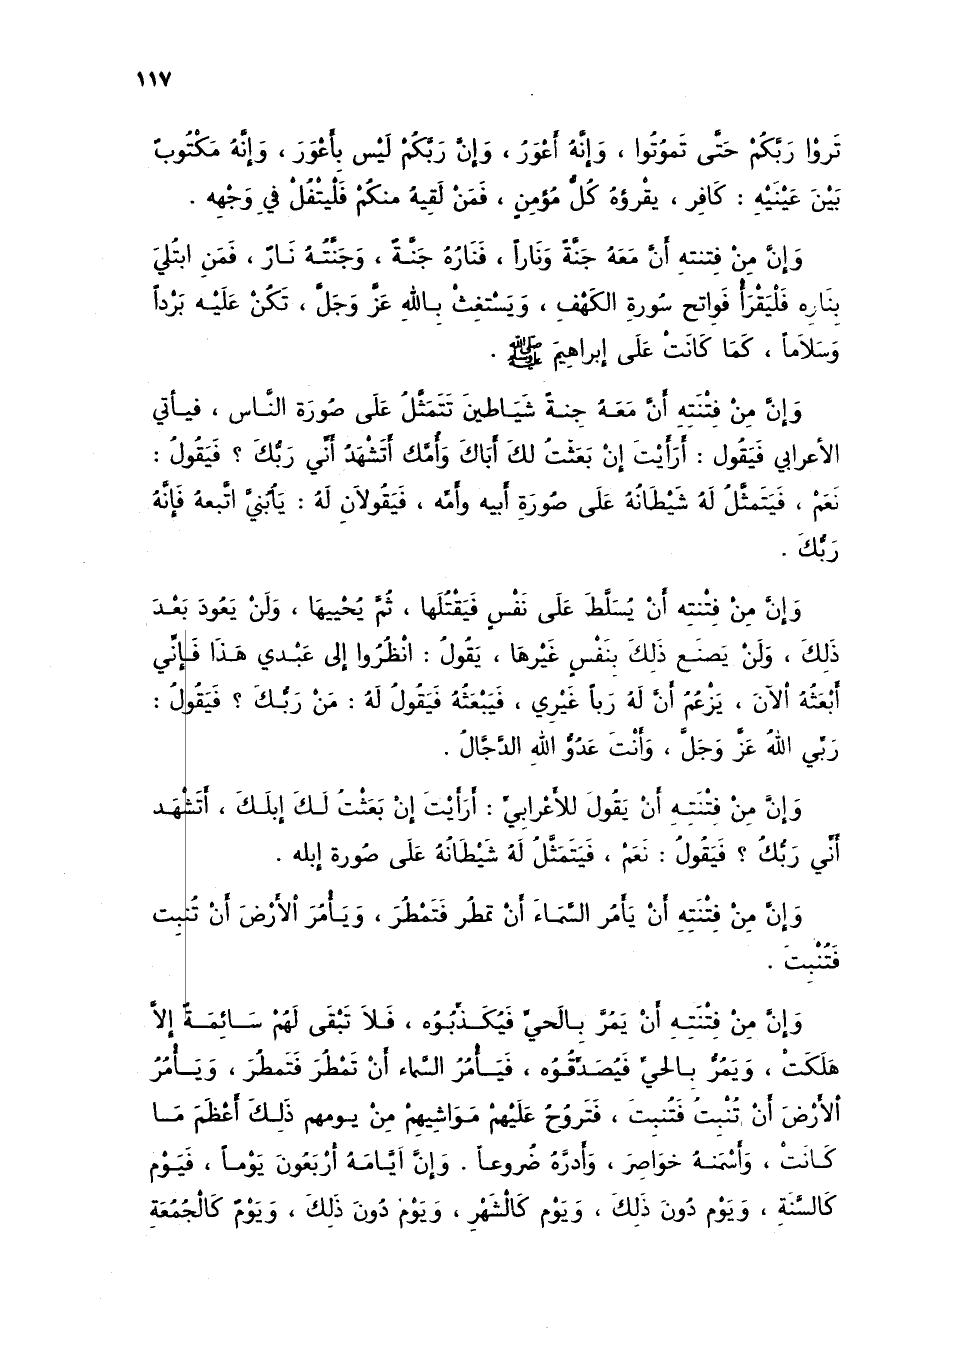 ١١٧
تَروْا رَبَّكُمْ حَتَّى تَموُتُوا ، وَإِنَّهُ أَعْوَرُ ، وَإِنَّ رَبَّكُمْ لَيْس بِأَعْوَرَ ، وَإِنَّهُ مَكْتُوبٌ
بَيْنَ عَيْنَيْهِ : كَافِر ، يقْرؤهُ كُلُّ مُؤمِنٍ ، فَمَنْ لَقِيهُ منكُمْ فَلْيَتْفُلْ في وَجْهِه .
وَإِنَّ مِنْ فِتنتهِ أَنَّ مَعَهُ جَنَّةً وَنَاراً ، فَنَارُهُ جَنَّةٌ ، وَجَنَّتُهُ نَارٌ ، فَمَنِ ابتُلِيَ
بِنَارِه فَلْيَقْرَأْ فَواتحِ سُورةِ الكَهْفِ ، وَيَسْتغِثْ بِاللهِ عَزَّ وَجَلَّ ، تَكُنْ عَلَيْهِ بَرْداً
وَسَلاَماً ، كَمَا كَانَتْ عَلَى إبراهِيمَ ﷺ .
وَإِنَّ مِنْ فِتْنَتِهِ أَنَّ مَعَهُ جِنةً شَيَاطينَ تَتَمَثَّلُ عَلَى صُورَةِ النَّاس ، فيأتي
الأعرابي فَيَقُول : أَرَأَيْتَ إنْ بَعَثتُ لكَ أَبَاكَ وَأُمَّك أَتَشْهَدُ أَنِّي رَبُّكَ ؟ فَيَقُولُ :
نَعَمْ ، فَيَتَمثَّلُ لَهُ شَيْطَانُهُ عَلَى صُورَةِ أبيه وأمِّه ، فَيَقُولاَنِ لَهُ : يَابُنيَّ اتَّبعهُ فَإِنَّهُ
رَبُّكَ .
وَإِنَّ مِنْ فِتْنتِه أَنْ يُسَلَّطَ عَلَى نَفْسٍ فَيَقْتُلَها ، ثُمَّ يُحْييهَا ، وَلَنْ يَعُودَ بَعْدَ
ذَلِكَ ، وَلَنْ يَصنَع ذَلِكَ بِنَفْسٍ غَيْرِهَا ، يَقُولُ : انْظُرُوا إلى عَبْدي هَذَا فَإِنِّي
أَبْعَثُهُ الآنَ ، يَزْعُمُ أَنَّ لَهُ رَباً غَيْرِي ، فَيَبْعَثُهُ فَيَقُولُ لَهُ : مَنْ رَبُّكَ ؟ فَيَقُولُ :
رَبِّي اللهُ عَزَّ وَجَلَّ ، وَأَنْتَ عَدُوُّ اللهِ الدَّجَّالُ .
وَإِنَّ مِنْ فِتْنَتِهِ أَنْ يَقُولَ للأَعْرابيِّ : أَرَأَيْتَ إِنْ بَعَثْتُ لَكَ إِبلَكَ ، أَتَشْهَد
أَنِّي رَبُّكُ ؟ فَيَقُولُ : نَعَمْ ، فَيَتَمثَّلُ لَهُ شَيْطَانُهُ عَلَى صُورةِ إبله .
وَإِنَّ مِنْ فِتْنَتِهِ أَنْ يَأمُر السَّمَاءَ أَنْ تمطُر فَتَمْطُرَ ، وَيَأْمُرَ الأَرْضَ أَنْ تُنبت
فَتُنْبِتَ .
وَإِنَّ مِنْ فِتْنَتِهِ أَنْ يَمُرَّ بِالَحيِّ فَيُكَذِّبُوُه ، فَلاَ تَبْقَى لَهُمْ سَائِمَةٌ إلاَّ
هَلَكَتْ ، وَيَمُرُّ بِالحَيِّ فَيُصَدِّقُوُه ، فَيَأْمُرُ السَّماء أَنْ تَمْطُرَ فَتَمطُرَ ، وَيَأْمُرُ
الأَرْضَ أَنْ تُنْبِتُ فَتُنبتَ ، فَتَروُحُ عَلَيْهِمْ مَوَاشيهِمْ مِنْ يومهم ذَلِكَ أَعْظَمَ مَا
كَانَتْ ، وَأَسْمَنهُ خوَاصِرَ ، وَأدرَّهُ ضُروعاً . وَإِنَّ أيَّامَهُ أَرْبَعُونَ يَوْماً ، فَيَوْم
كَالسَّنَةِ ، وَيَوْم دُونَ ذَلِكَ ، وَيَوْم كَالْشَهْرِ ، وَيَوْمٌ دُونَ ذَلِكَ ، وَيَوْمٌ كَالْجُمُعَةِ